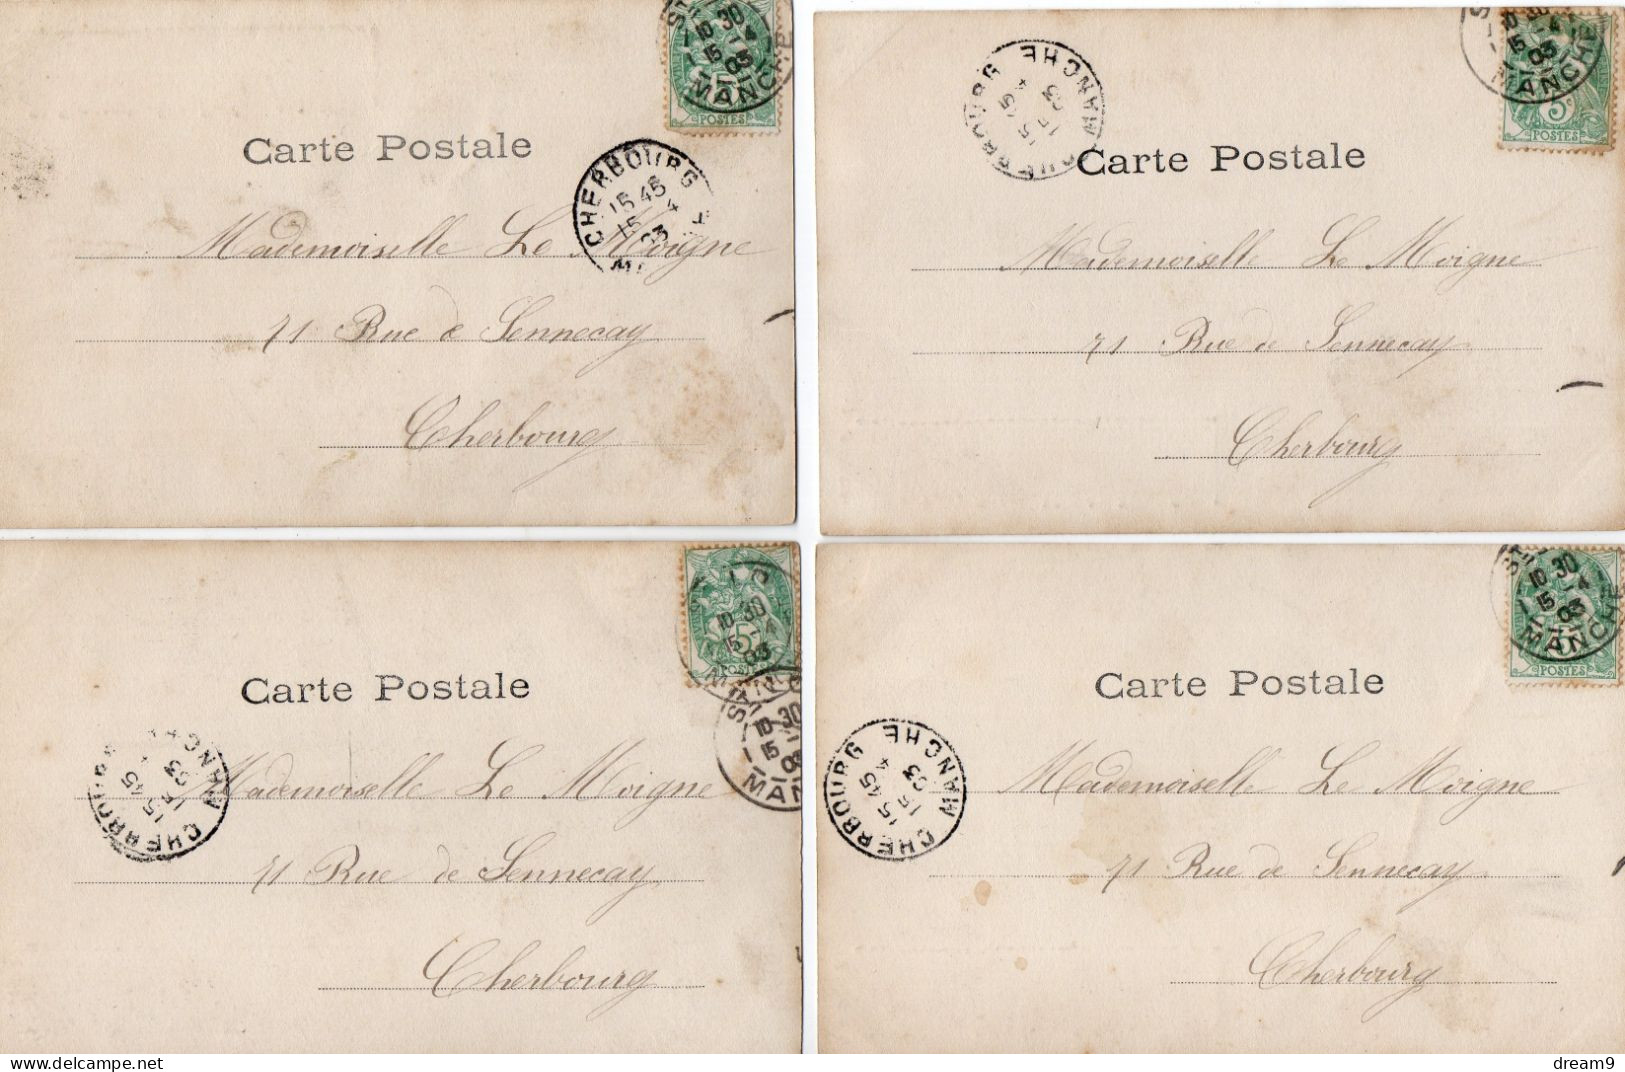 10 30
15 -4
03
MANCHE
POSTES
Carte Postale
CHERBOURG
15 45
15 4
03
Mademoiselle Le Moigne
71 Rue de Sennecay
Cherbourg
10 30
15 -4
03
MANCHE
5c
CHERBOURG MANCHE
15 45
15 4
03
Carte Postale
Mademoiselle Le Moigne
71 Rue de Sennecay
Cherbourg
10 30
15 -4
03
5
POSTES
Carte Postale
10 30
15
03
MAN
CHERBOURG MANCHE
15 45
15 4
03
Mademoiselle Le Moigne
71 Rue de Sennecay
Cherbourg
10 30
15 -4
03
MANCHE
POSTES
Carte Postale
CHERBOURG MANCHE
15 45
15 4
03
Mademoiselle Le Moigne
71 Rue de Sennecay
Cherbourg
www.delcampe.net
dream9